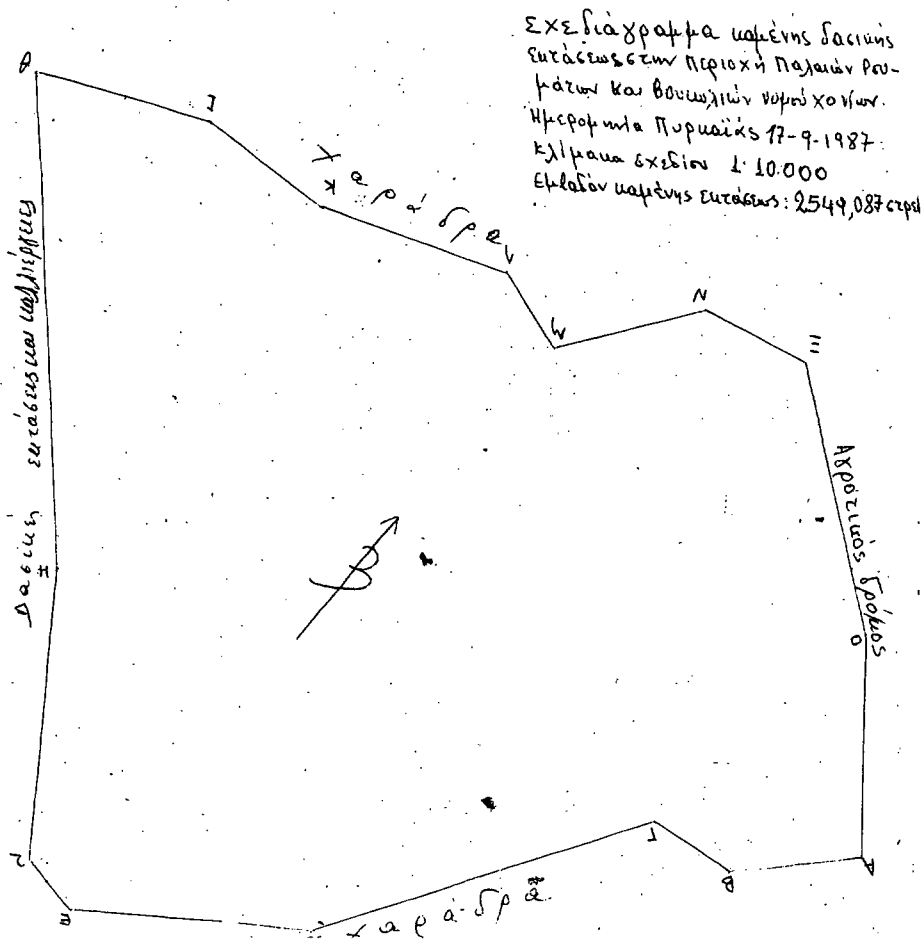 Σχεδιάγραμμα καμένης δασικής
εκτάσεως στην περιοχή Παλαιών Ρου-
μάτων και Βουκολιών νομού Χανίων.
Ημερομηνία Πυρκαϊάς 17-9-1987
Κλίμακα σχεδίου 1:10.000
Εμβαδόν καμένης εκτάσεως: 2549,087 στρεμ
Θ
Ι
Χαράδρα
Κ
Λ
Μ
Ν
Ξ
Αγροτικός δρόμος
Ο
Δασικές εκτάσεις και καλλιέργειες
Η
Β
Ζ
Ε
Χαράδρα
Γ
Β
Α